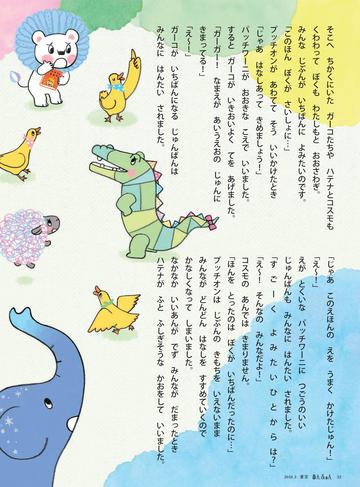 そこへ ちかくにいた ガーコたちや ハテナとコスモも
くわわって ぼくも わたしもと おおさわぎ。
みんな じぶんが いちばんに よみたいのです。
「このほん ぼくが さいしょに…」
プッチオンが あわてて そう いいかけたとき
「じゃあ はなしあって きめましょう!」
パッチワーニが おおきな こえで いいました。
すると ガーコが いきおいよく てを あげました。
「ガーガー! なまえが あいうえおの じゅんに
きまってる!」
「え〜!」
ガーコが いちばんになる じゅんばんは
みんなに はんたい されました。
「じゃあ このえほんの えを うまく かけたじゅん!」
「え〜!」
えが とくいな パッチワーニに つごうのいい
じゅんばんも みんなに はんたい されました。
「す ご ー く よみたいひとからは?」
「え〜! そんなの みんなだよ!」
コスモの あんでは きまりません。
「ほんを とったのは ぼくが いちばんだったのに…」
プッチオンは じぶんの きもちを いえないまま
みんなが どんどん はなしを すすめていくので
かなしくなって しまいました。
なかなか いいあんが でず みんなが だまったとき
ハテナが ふと ふしぎそうな かおをして いいました。